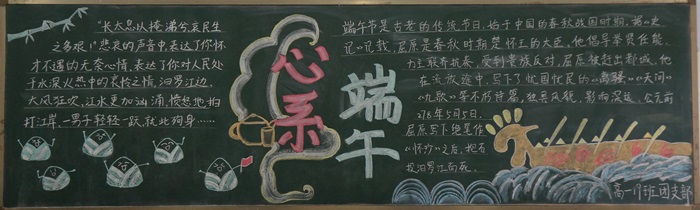 "长太息以掩涕兮,哀民生
之多艰!"悲哀的声音中,表达了你怀
才不遇的无奈心情,表达了你对人民处
于水深火热中的哀怜之情。汨罗江边,
大风狂吹,江水更加汹涌,愤怒地拍
打江岸,一男子轻轻一跃,就此殉身……
心系
端午
端午节是古老的传统节日,始于中国的春秋战国时期。据《史
记》记载,屈原是春秋时期楚怀王的大臣,他倡导举贤任能,
力主联齐抗秦,受到贵族反对,屈原被赶出都城,他
在流放途中,写下了忧国忧民的《离骚》《天问》
《九歌》等不朽诗篇,独具风貌,影响深远。公元前
278年5月5日,
屈原写下绝笔作
《怀沙》之后,抱石
投汨罗江而死。
高一17班团支部